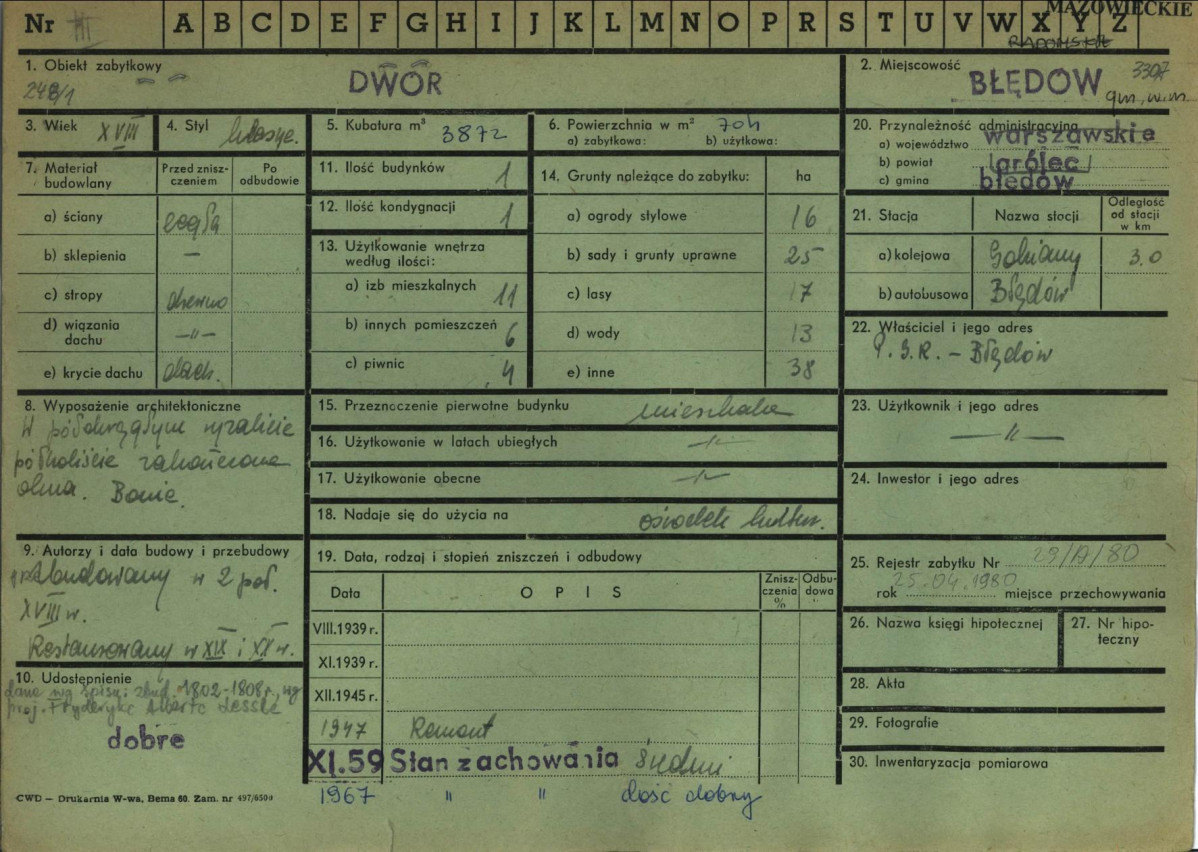 Nr III A B C D E F G H I J K L M N O P R S T U V W X Y Z
MAZOWIECKIE
RADOMSKIE
1. Obiekt zabytkowy
248/1
DWÓR
2. Miejscowość
BŁĘDÓW
3307
gm. w.m.
3. Wiek XVIII
4. Styl klasyc.
5. Kubatura m³ 3872
6. Powierzchnia w m² 704
a) zabytkowa: b) użytkowa:
20. Przynależność administracyjna
a) województwo warszawskie
b) powiat grójec
c) gmina błedów
7. Materiał budowlany
Przed zniszczeniem
Po odbudowie
a) ściany cegła
b) sklepienia —
c) stropy drewno
d) wiązania dachu —"—
e) krycie dachu dach.
11. Ilość budynków 1
12. Ilość kondygnacji 1
13. Użytkowanie wnętrza według ilości:
a) izb mieszkalnych 11
b) innych pomieszczeń 6
c) piwnic 4
14. Grunty należące do zabytku: ha
a) ogrody stylowe 16
b) sady i grunty uprawne 25
c) lasy 17
d) wody 13
e) inne 38
21. Stacja
Nazwa stacji
Odległość od stacji w km
a) kolejowa Golniany 3.0
b) autobusowa Błędów
22. Właściciel i jego adres
P.G.R. – Błędów
8. Wyposażenie architektoniczne
W półokrągłym ryzalicie
półkoliście zakończone
okna. Bonie.
15. Przeznaczenie pierwotne budynku mieszkalne
16. Użytkowanie w latach ubiegłych —"—
17. Użytkowanie obecne —"—
18. Nadaje się do użycia na ośrodek kultur.
23. Użytkownik i jego adres
—"—
24. Inwestor i jego adres
9. Autorzy i data budowy i przebudowy
zbudowany w 2 poł.
XVIII w.
Restaurowany w XIX i XX w.
19. Data, rodzaj i stopień zniszczeń i odbudowy
Data
O P I S
Zniszczenia %
Odbudowa
VIII.1939 r.
XI.1939 r.
XII.1945 r.
1947 Remont
XI.59 Stan zachowania średni
1967 " " dość dobry
25. Rejestr zabytku Nr 29/A/80
rok 25.04.1980 miejsce przechowywania
26. Nazwa księgi hipotecznej
27. Nr hipoteczny
28. Akta
29. Fotografie
30. Inwentaryzacja pomiarowa
10. Udostępnienie
dane wg spisu: zbud. 1802-1808 r. wg
proj. Fryderyka Alberta Lessla
dobre
CWD — Drukarnia W-wa, Bema 60. Zam. nr 497/6500